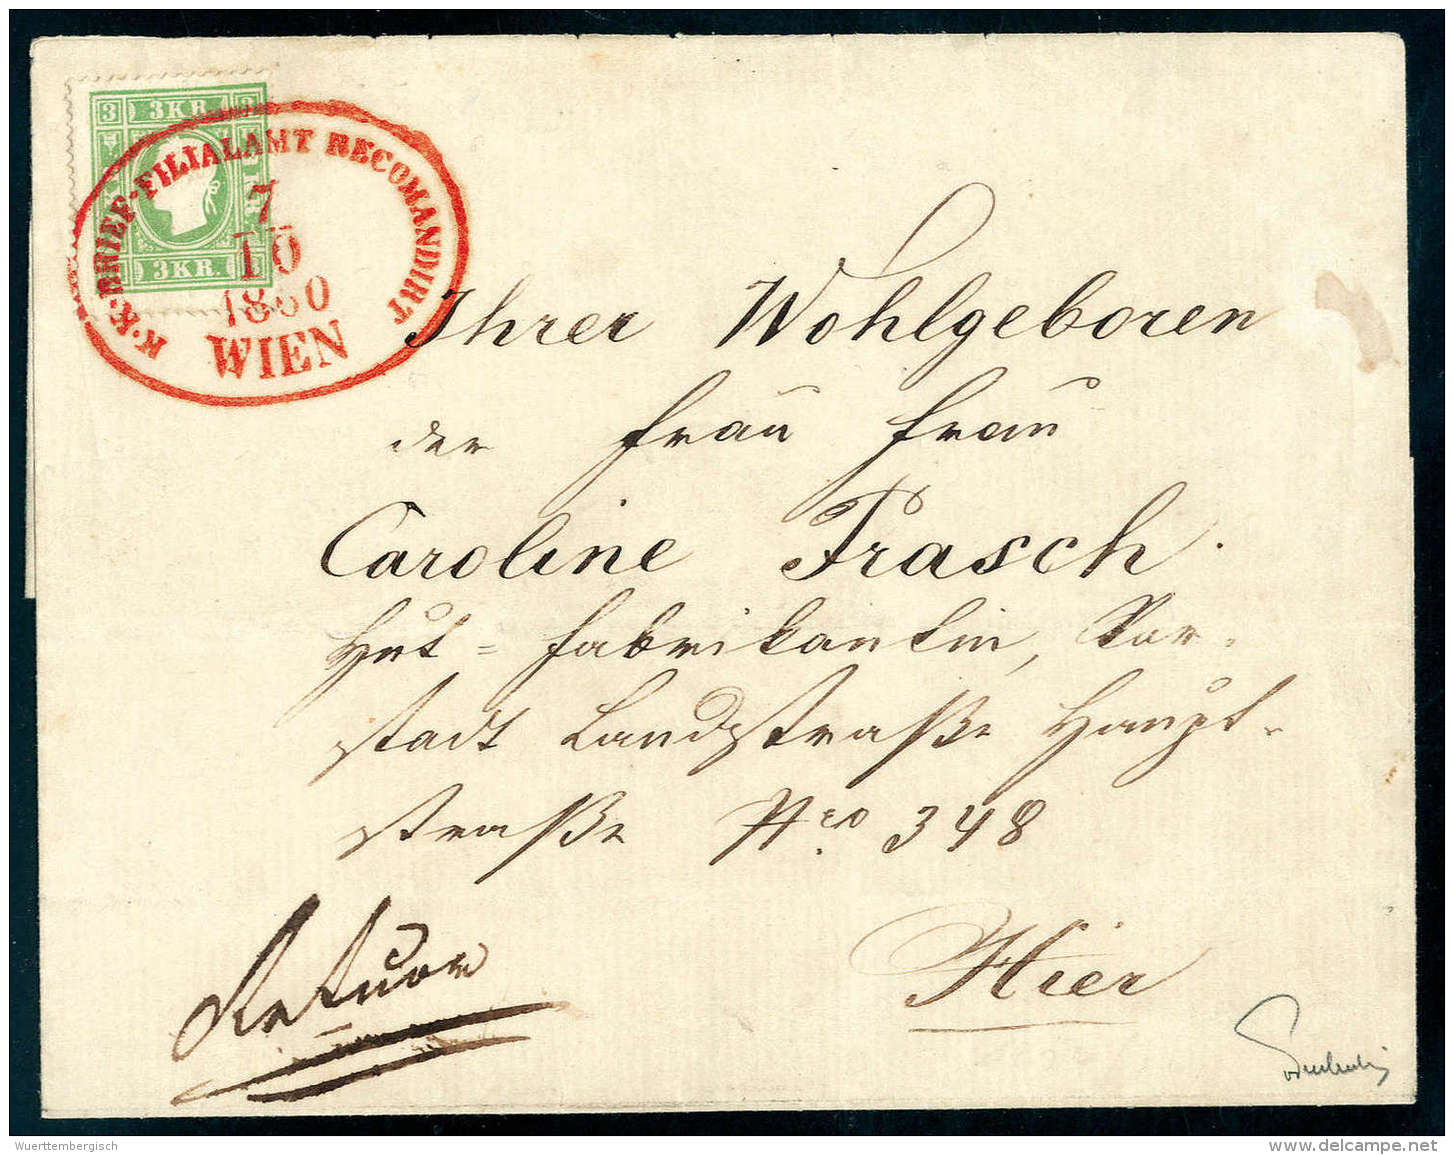 3 3 KR. 3
3 KR.
K. K. BRIEF-FILIALAMT RECOMANDIRT
7
10
1860
WIEN
Ihrer Wohlgeboren
der Frau Frau
Caroline Frasch.
Hut=Fabrikantin, Vor-
stadt Landstraße Haupt-
straße Nro. 348
Hier
Wuerttembergisch
delcampe.net